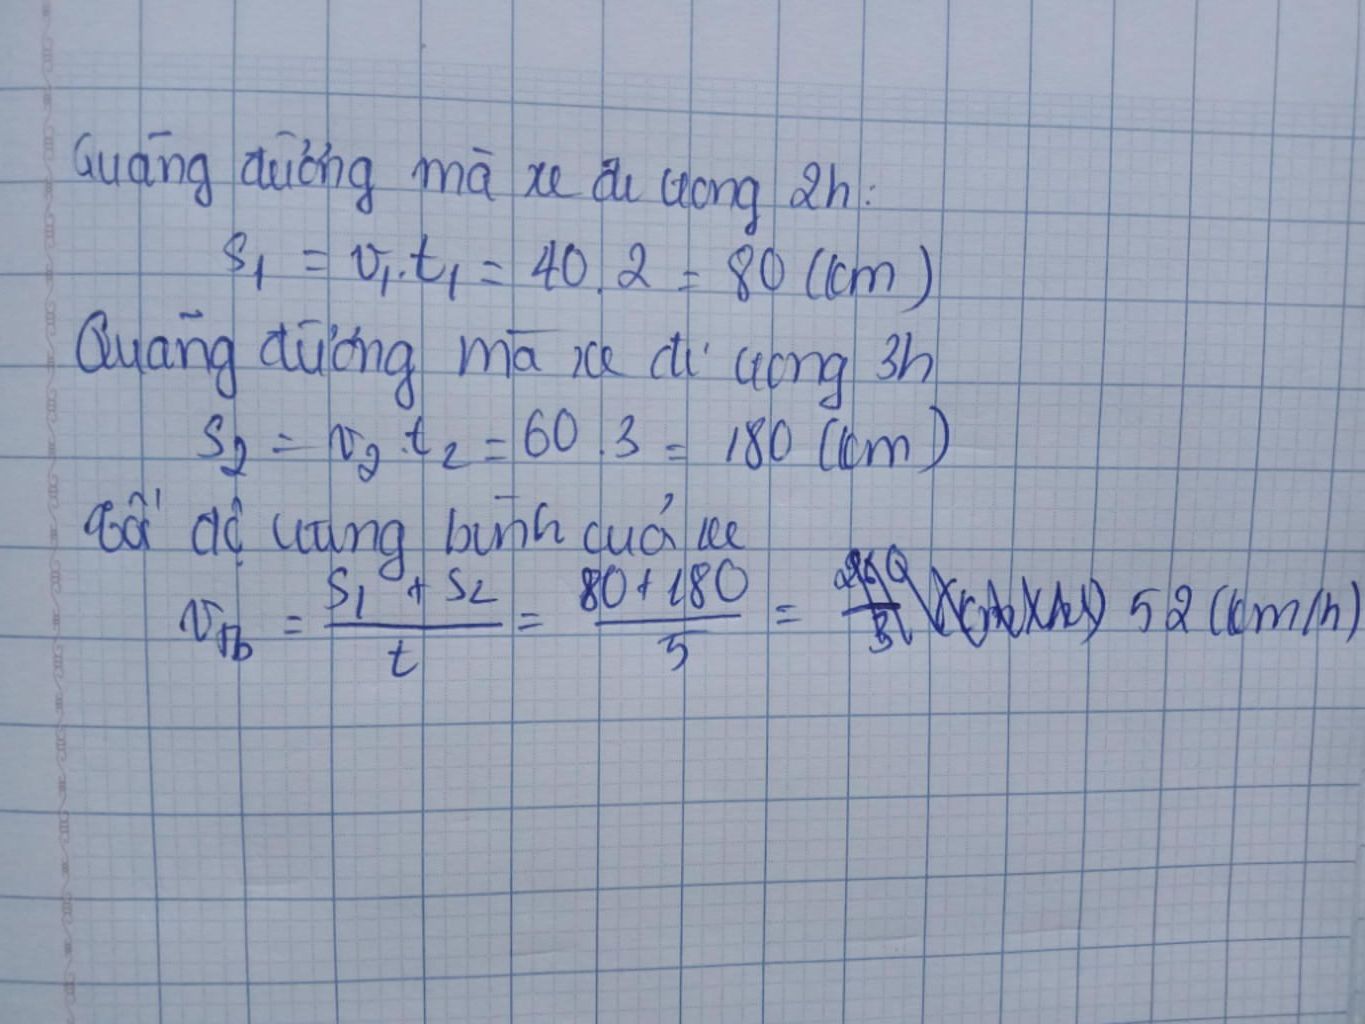 Quãng đường mà xe đi trong 2h:
S₁ = v₁.t₁ = 40.2 = 80 (km)
Quãng đường mà xe đi trong 3h
S₂ = v₂.t₂ = 60.3 = 180 (km)
Tốc độ trung bình của xe
v_tb = (S₁ + S₂)/t = (80+180)/5 = 52 (km/h)